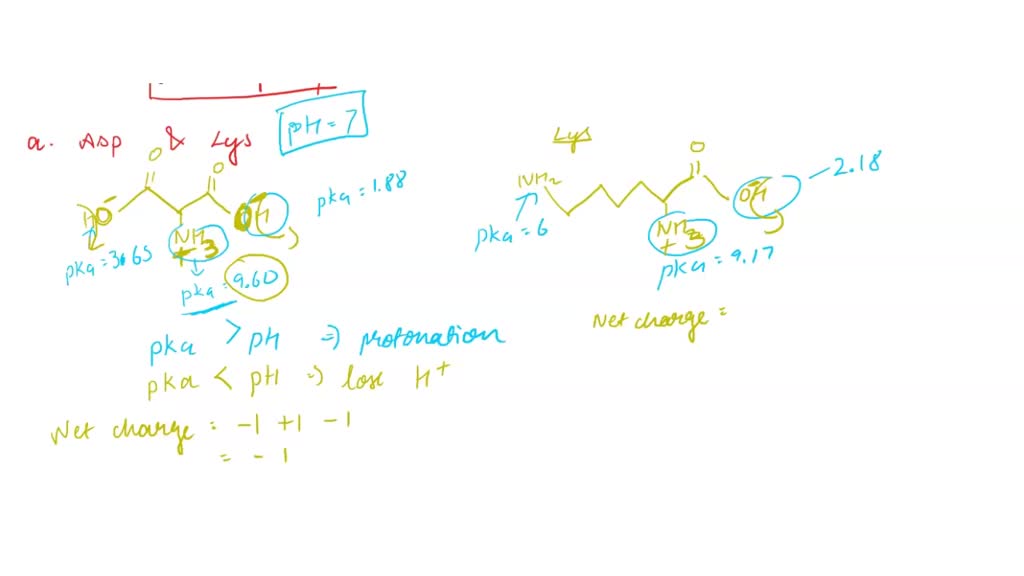 a. Asp & Lys
pH = 7
O
O
HO-
O-H
NH3
+
pka = 1.88
pka = 3.65
pka = 9.60
pka > pH => protonation
pka < pH => lose H+
Net charge = -1 +1 -1
= -1
Lys
O
NH2
OH
-
2.18
pka = 6
NH3
+
pka = 9.17
Net charge =